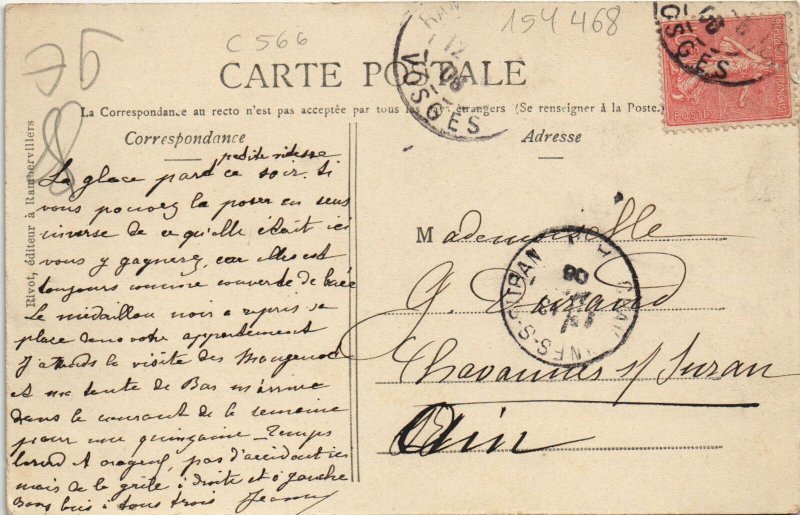 154 468
C 566
CARTE POSTALE
La Correspondance au recto n'est pas acceptée par tous les étrangers (Se renseigner à la Poste.)
Correspondance
petite vitesse
La glace part ce soir. Si
vous pouvez la poser en sens
inverse de ce qu'elle était ici
vous y gagnerez, car elles est
toujours comme couverte de buée
Le médaillon noir a repris sa
place dans votre appartement
J'attends la visite des
et ma tante de Bar m'arrive
dans le courant de la semaine
pour une quinzaine - Temps
lourd et orageux, pas d'accident ici
mais de la grêle à droite et à gauche
Bons bais à tous trois Jeanne
Adresse
Mademoiselle
G. Durand
Chavannes s/ Suran
Ain
Rivot, éditeur à Rambervillers
VOSGES
08
VOSGES
POSTES
CHAVANNES-S-SURAN
08